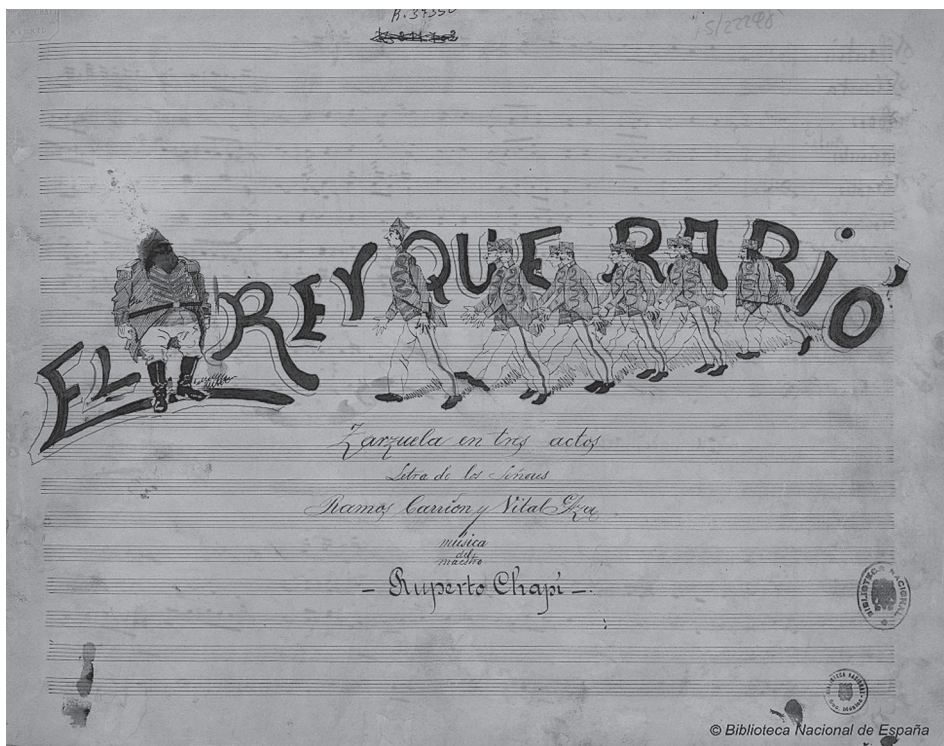 15/22248
EL REY QUE RABIÓ
Zarzuela en tres actos
Letra de los Señores
Ramos Carrión y Vital Aza
música
del
maestro
- Ruperto Chapí -.
BIBLIOTECA NACIONAL
BIBLIOTECA NACIONAL
© Biblioteca Nacional de España